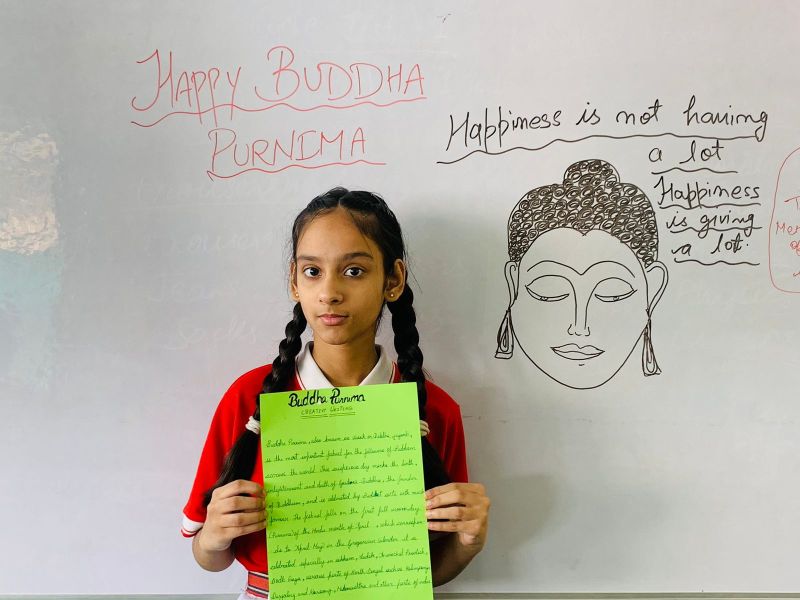 HAPPY BUDDHA
PURNIMA
Happiness is not having
a lot
Happiness
is giving
a lot.
Buddha Purnima
CREATIVE WRITING
Buddha Purnima, also known as
is the most important festival for the followers of Buddhism
across the world. This auspicious day marks the birth,
enlightenment and death of Gautama Buddha, the founder
of Buddhism, and is celebrated by Buddhist
The festival falls on the first full moon day
(Purnima) of the Hindu month of
to April May) in the Gregorian calendar it is
celebrated especially in sikkim, Ladakh, Arunachal Pradesh,
Bodh Gaya, various parts of North Bengal such as Kalimpong
and and other parts of